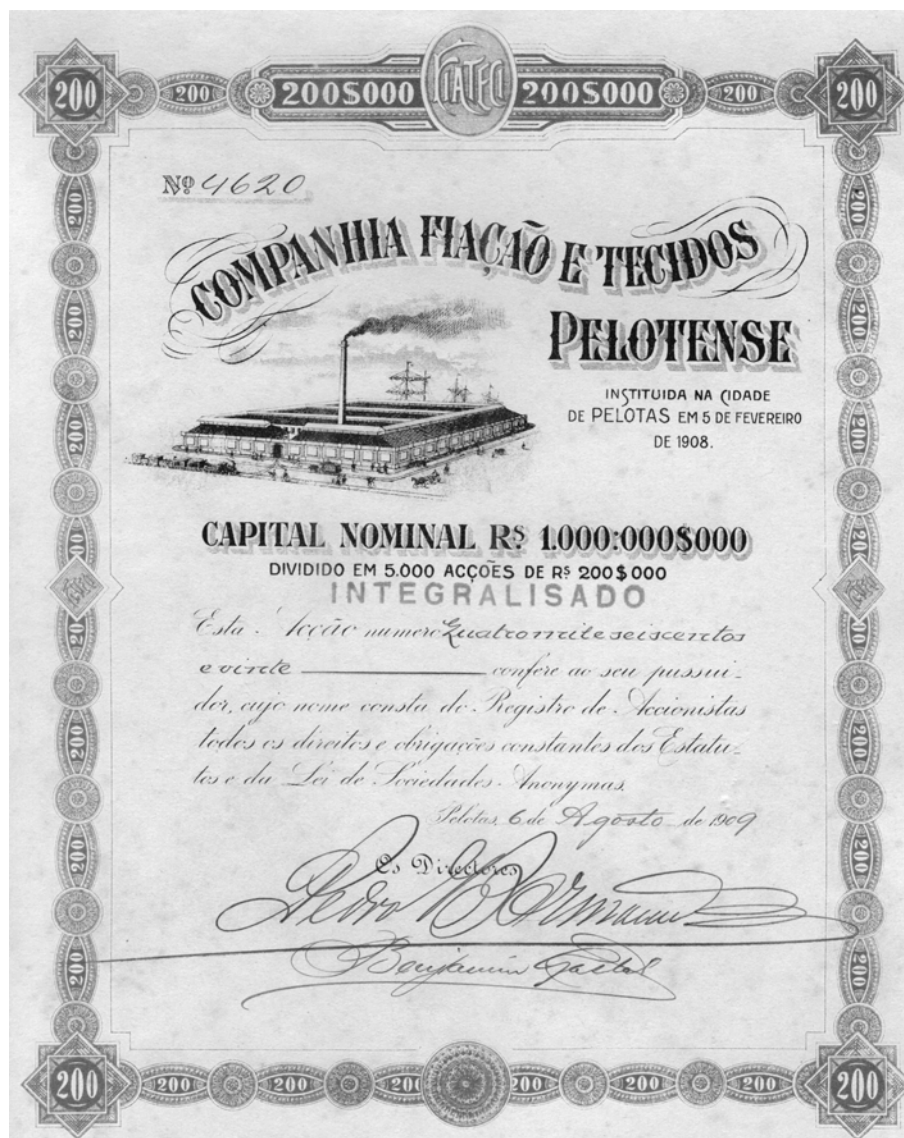 200 200 200$000 FIATECI 200$000 200 200
Nº 4620
COMPANHIA FIAÇÃO E TECIDOS
PELOTENSE
INSTITUIDA NA CIDADE
DE PELOTAS EM 5 DE FEVEREIRO
DE 1908.
CAPITAL NOMINAL RS 1.000:000$000
DIVIDIDO EM 5.000 ACÇÕES DE RS 200$000
INTEGRALISADO
Esta Acção numero Quatro mil e seiscentos
e vinte confere ao seu possui-
dor, cujo nome consta do Registro de Accionistas
todos os direitos e obrigações constantes dos Estatu-
tos e da Lei de Sociedades Anonymas.
Pelotas, 6 de Agosto de 1909
Os Directores
Pedro
Benjamin Gastal
200 200 200 200 200 200 200 200